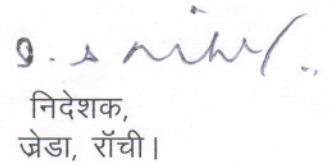 निदेशक,
ज्रेडा, राँची।